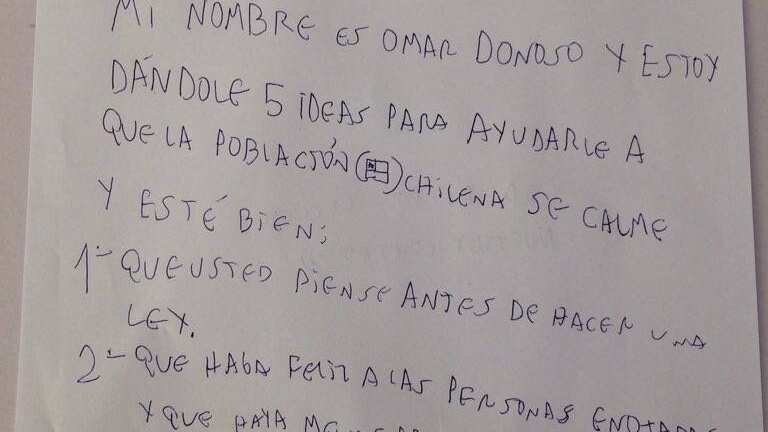 MI NOMBRE ES OMAR DONOSO Y ESTOY
DÁNDOLE 5 IDEAS PARA AYUDARLE A
QUE LA POBLACIÓN ( ) CHILENA SE CALME
Y ESTÉ BIEN;
1- QUE USTED PIENSE ANTES DE HACER UNA
LEY.
2- QUE HAGA FELIZ A LAS PERSONAS
Y QUE HAYA